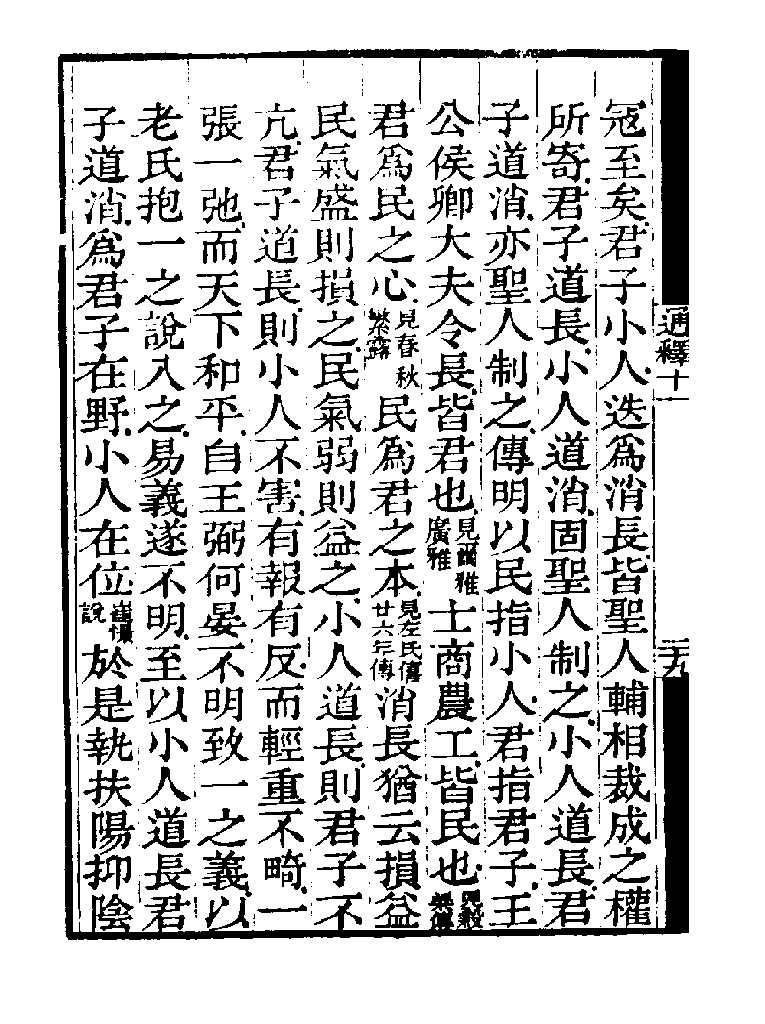 通釋十一
二十九
寇至矣君子小人迭爲消長皆聖人輔相裁成之權
所寄君子道長小人道消固聖人制之小人道長君
子道消亦聖人制之傳明以民指小人君指君子王
公侯卿大夫令長皆君也見爾雅廣雅士商農工皆民也見穀梁傳
君爲民之心見春秋繁露民爲君之本見左氏傳廿六年傳消長猶云損益
民氣盛則損之民氣弱則益之小人道長則君子不
亢君子道長則小人不害有報有反而輕重不畸一
張一弛而天下和平自王弼何晏不明致一之義以
老氏抱一之說入之易義遂不明至以小人道長君
子道消爲君子在野小人在位崔憬說於是執扶陽抑陰